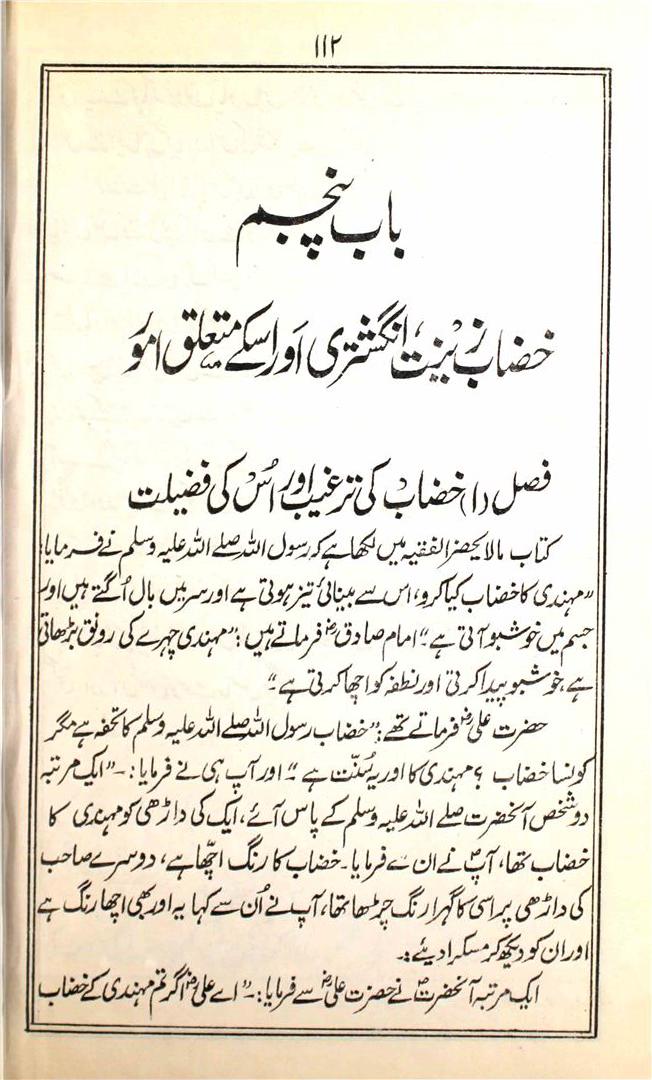 ۱۱۲
باب پنجم
خضاب زینت، انگشتری اور اسکے متعلق امور
فصل (۱) خضاب کی ترغیب اور اُس کی فضیلت
کتاب مالا یحضر الفقیہ میں لکھا ہے کہ رسول اللہ صلے اللہ علیہ وسلم نے فرمایا:
”مہندی کا خضاب کیا کرو، اس سے بینائی تیز ہوتی ہے اور سر میں بال اُگتے ہیں اور
جسم میں خوشبو آتی ہے۔“ امام صادقؓ فرماتے ہیں:۔ ”مہندی چہرے کی رونق بڑھاتی
ہے، خوشبو پیدا کرتی اور نطفہ کو اچھا کرتی ہے۔“
حضرت علیؓ فرماتے تھے:۔ ”خضاب رسول اللہ صلے اللہ علیہ وسلم کا تحفہ ہے مگر
کونسا خضاب ؟ مہندی کا اور یہ سُنّت ہے۔“ اور آپ ہی نے فرمایا:۔ ”ایک مرتبہ
دو شخص آنحضرت صلے اللہ علیہ وسلم کے پاس آئے، ایک کی داڑھی کو مہندی کا
خضاب تھا، آپؐ نے ان سے فرمایا۔ خضاب کا رنگ اچّھا ہے، دوسرے صاحب
کی داڑھی پر اسی کا گہرا رنگ چڑھا تھا، آپ نے اُن سے کہا یہ اور بھی اچھا رنگ ہے
اور ان کو دیکھ کر مسکرا دیئے:۔
ایک مرتبہ آنحضرتؐ نے حضرت علیؓ سے فرمایا:۔ ”اے علیؓ اگر تم مہندی کے خضاب